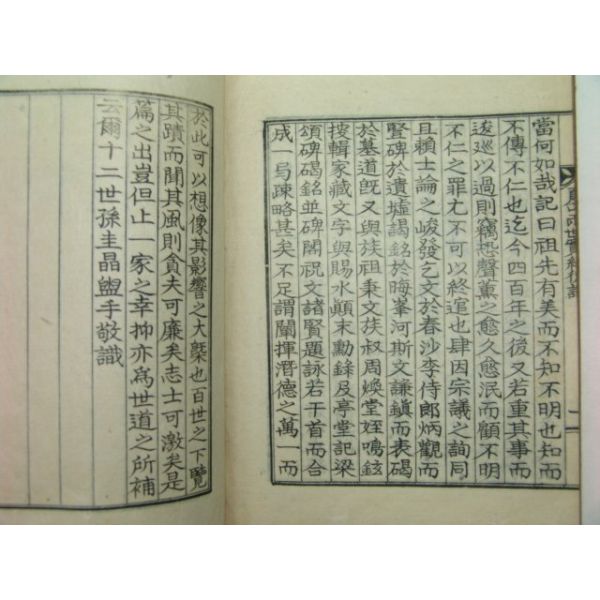 當何如哉記曰祖先有美而不知不明也知而
不傳不仁也迄今四百年之後又若重其事而
逡巡以過則竊恐聲薰之愈久愈泯而顧不明
不仁之罪尤不可以終逭也肆因宗議之詢同
且賴士論之峻發乞文於春沙李侍郎炳觀而
竪碑於遺墟謁銘於晦峯河斯文謙鎭而表碣
於墓道旣又與族祖秉文族叔周煥堂姪鳴鉉
搜輯家藏文字與賜水顚末勳錄及亭堂記梁
頌碑碣銘並碑閣祝文諸賢題詠若干首而合
成一局疎略甚矣不足謂闡揮潛德之萬一而
於此可以想像其影響之大槩也百世之下覽
其蹟而聞其風則貪夫可廉矣志士可激矣是
篇之出豈但止一家之幸抑亦爲世道之所補
云爾十二世孫圭晶盥手敬識